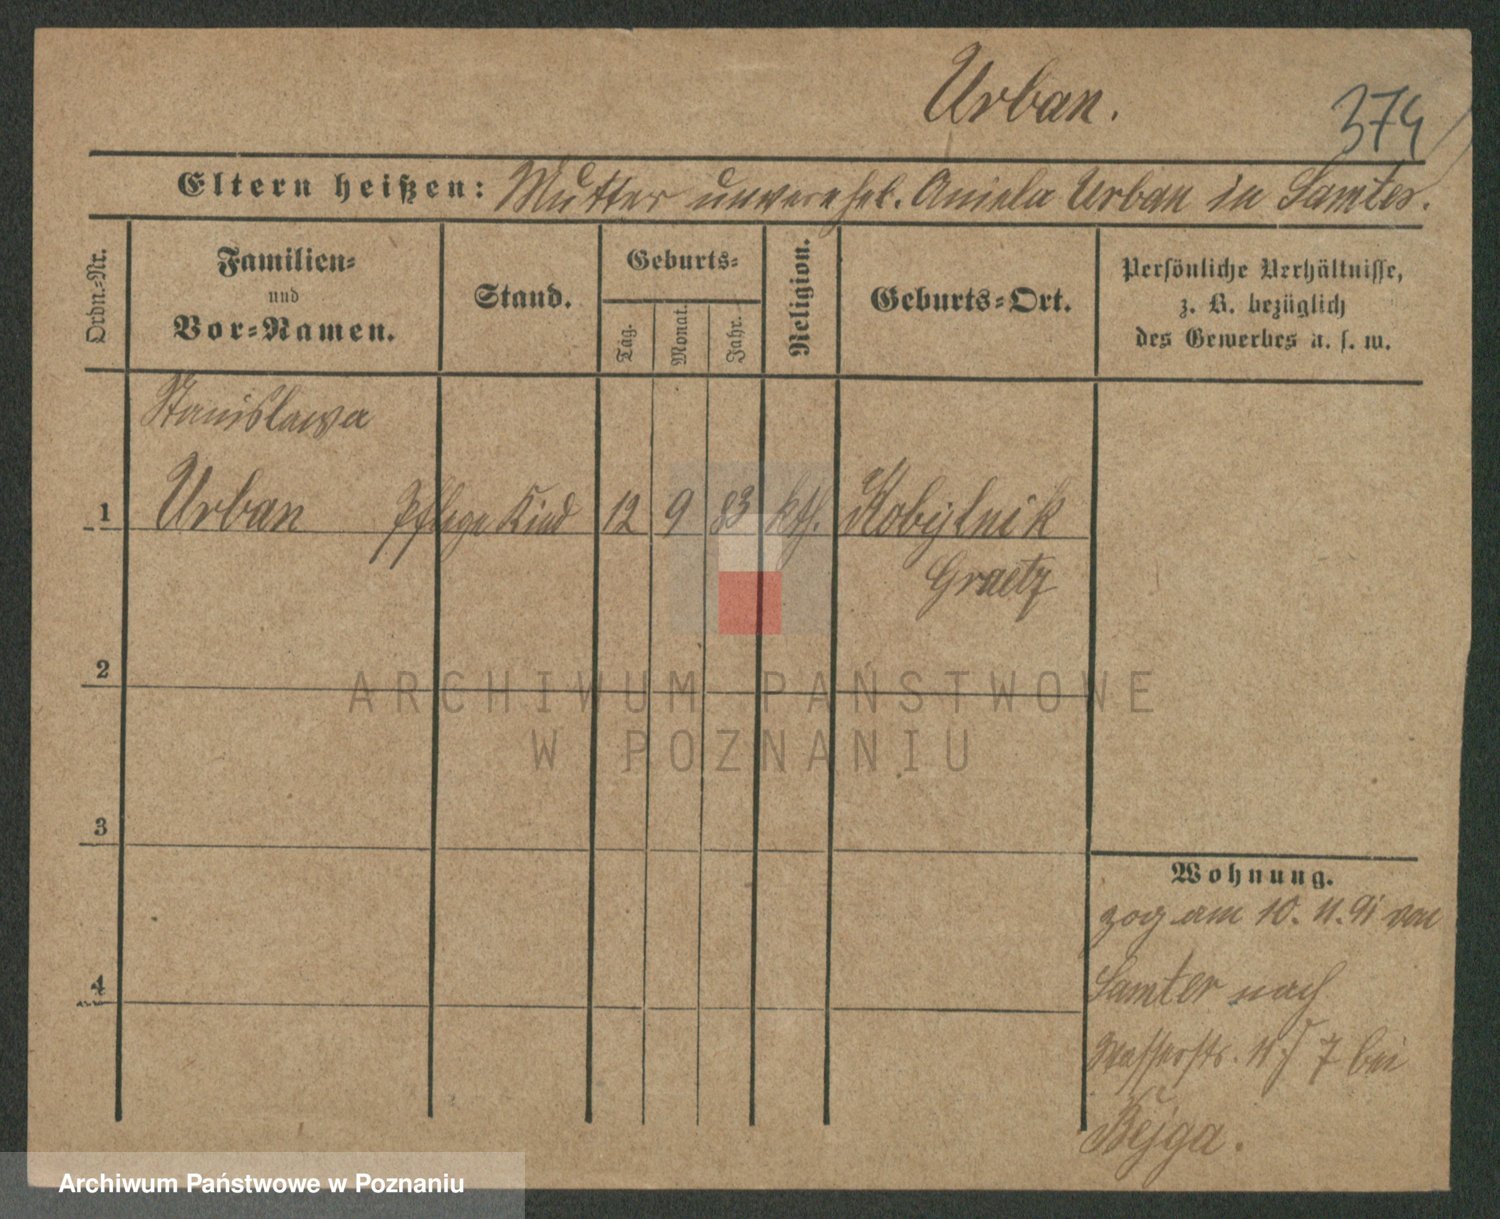 Urban.
374
Eltern heißen: Mutter unverehel. Aniela Urban in Samter.
Ordn.-Nr.
Familien-
und
Vor-Namen.
Stand.
Geburts-
Tag.
Monat.
Jahr.
Religion.
Geburts-Ort.
Persönliche Verhältnisse,
z. B. bezüglich
des Gewerbes u. s. w.
Stanislawa
1 Urban Pflege Kind 12 9 83 kth. Kobylnik
Graetz
2
3
4
Wohnung.
zog am 10. 11. 91 von
Samter nach
Wasserstr. 7 bei
Bejga.
ARCHIWUM PAŃSTWOWE
W POZNANIU
Archiwum Państwowe w Poznaniu